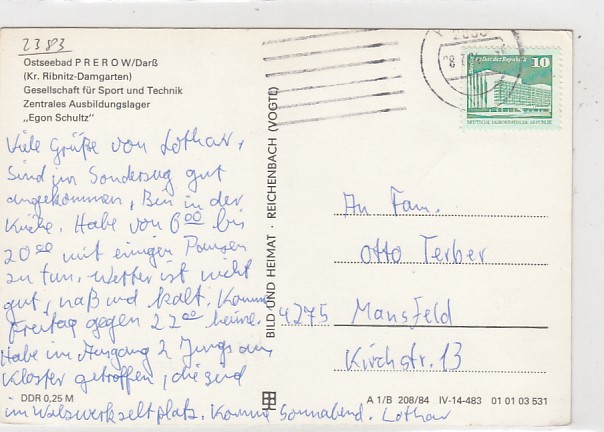 2383
Ostseebad PREROW/Darß
(Kr. Ribnitz-Damgarten)
Gesellschaft für Sport und Technik
Zentrales Ausbildungslager
„Egon Schultz“
Viele Grüße von Lothar,
Sind im Sonderzug gut
angekommen, Bin in der
Küche. Habe von 6 00 bis
20 00 mit einigen Pausen
zu tun. Wetter ist nicht
gut, naß und kalt. Komme
Freitag gegen 22 00 heim.
Habe im Ausgang 2 Jungs aus
Kloster getroffen, die sind
im Walzwerkzeltplatz. Komme Sonnabend. Lothar
BILD UND HEIMAT · REICHENBACH (VOGTL)
Palast der Republik 10
DEUTSCHE DEMOKRATISCHE REPUBLIK
An Fam.
Otto Terber
4275 Mansfeld
Kirchstr. 13
DDR 0,25 M
A 1/B 208/84 IV-14-483 01 01 03 531